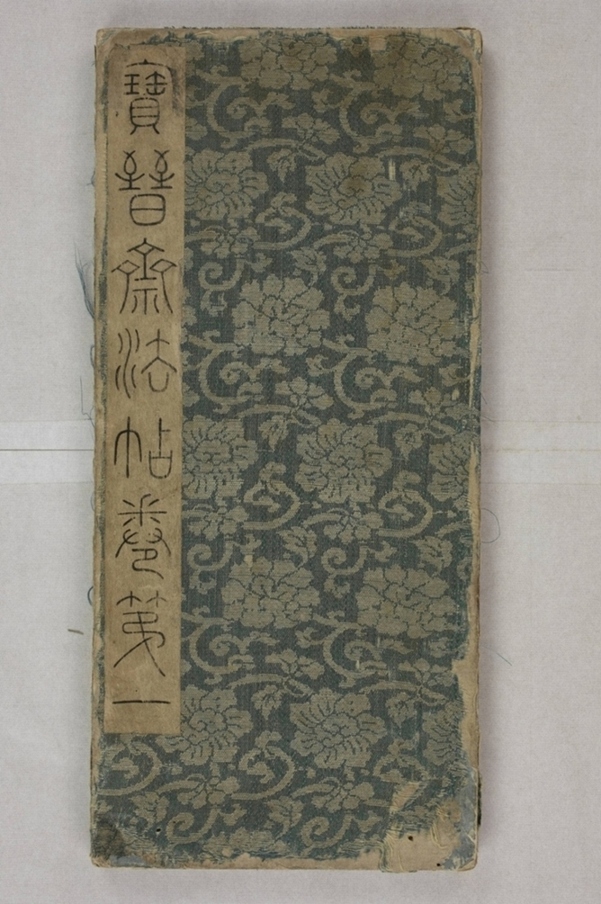 寶晉齋法帖卷第一